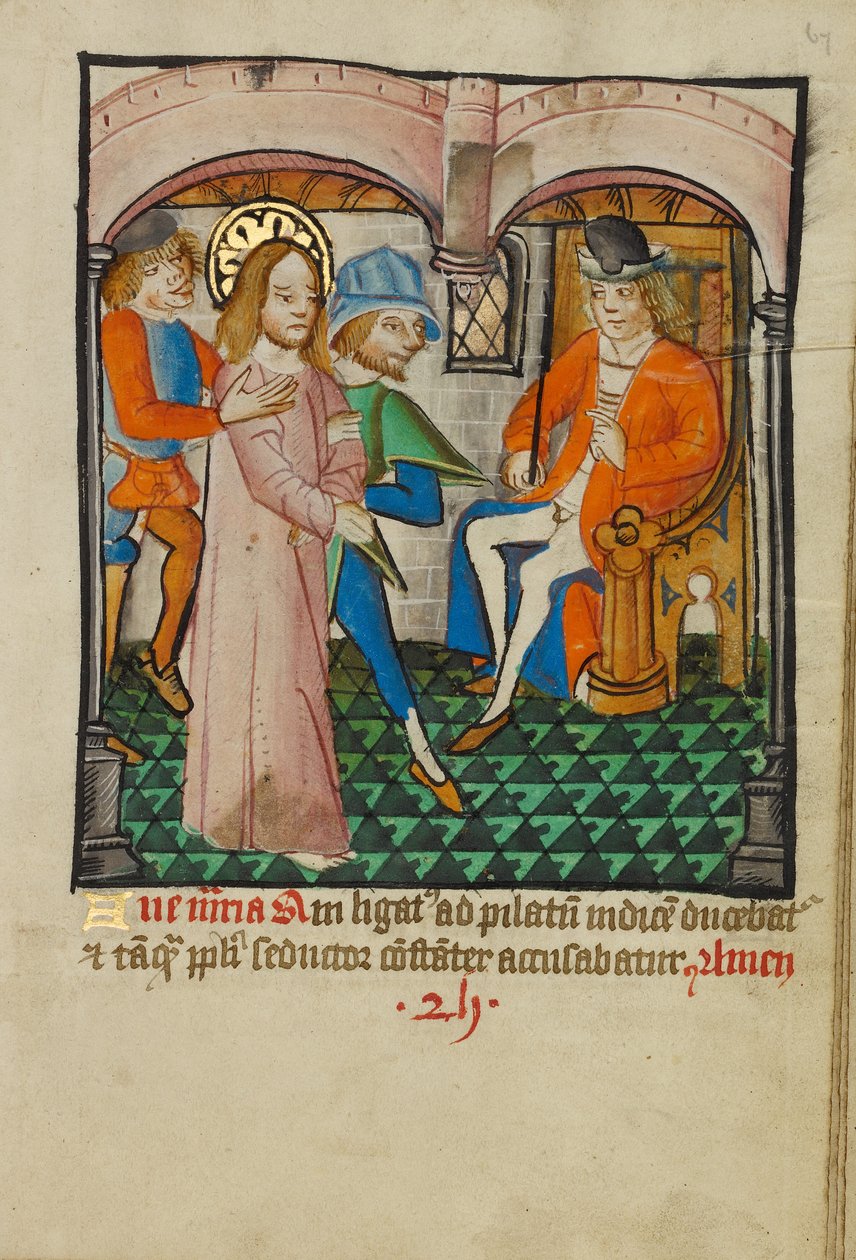 67
Aue m̄ria Qm̄ ligatꝰ ad pilatū iudicē ducebatᵃ
⁊ tāqꝫ ppl̓i seductor cōstāter accusabatur Amen
·24·